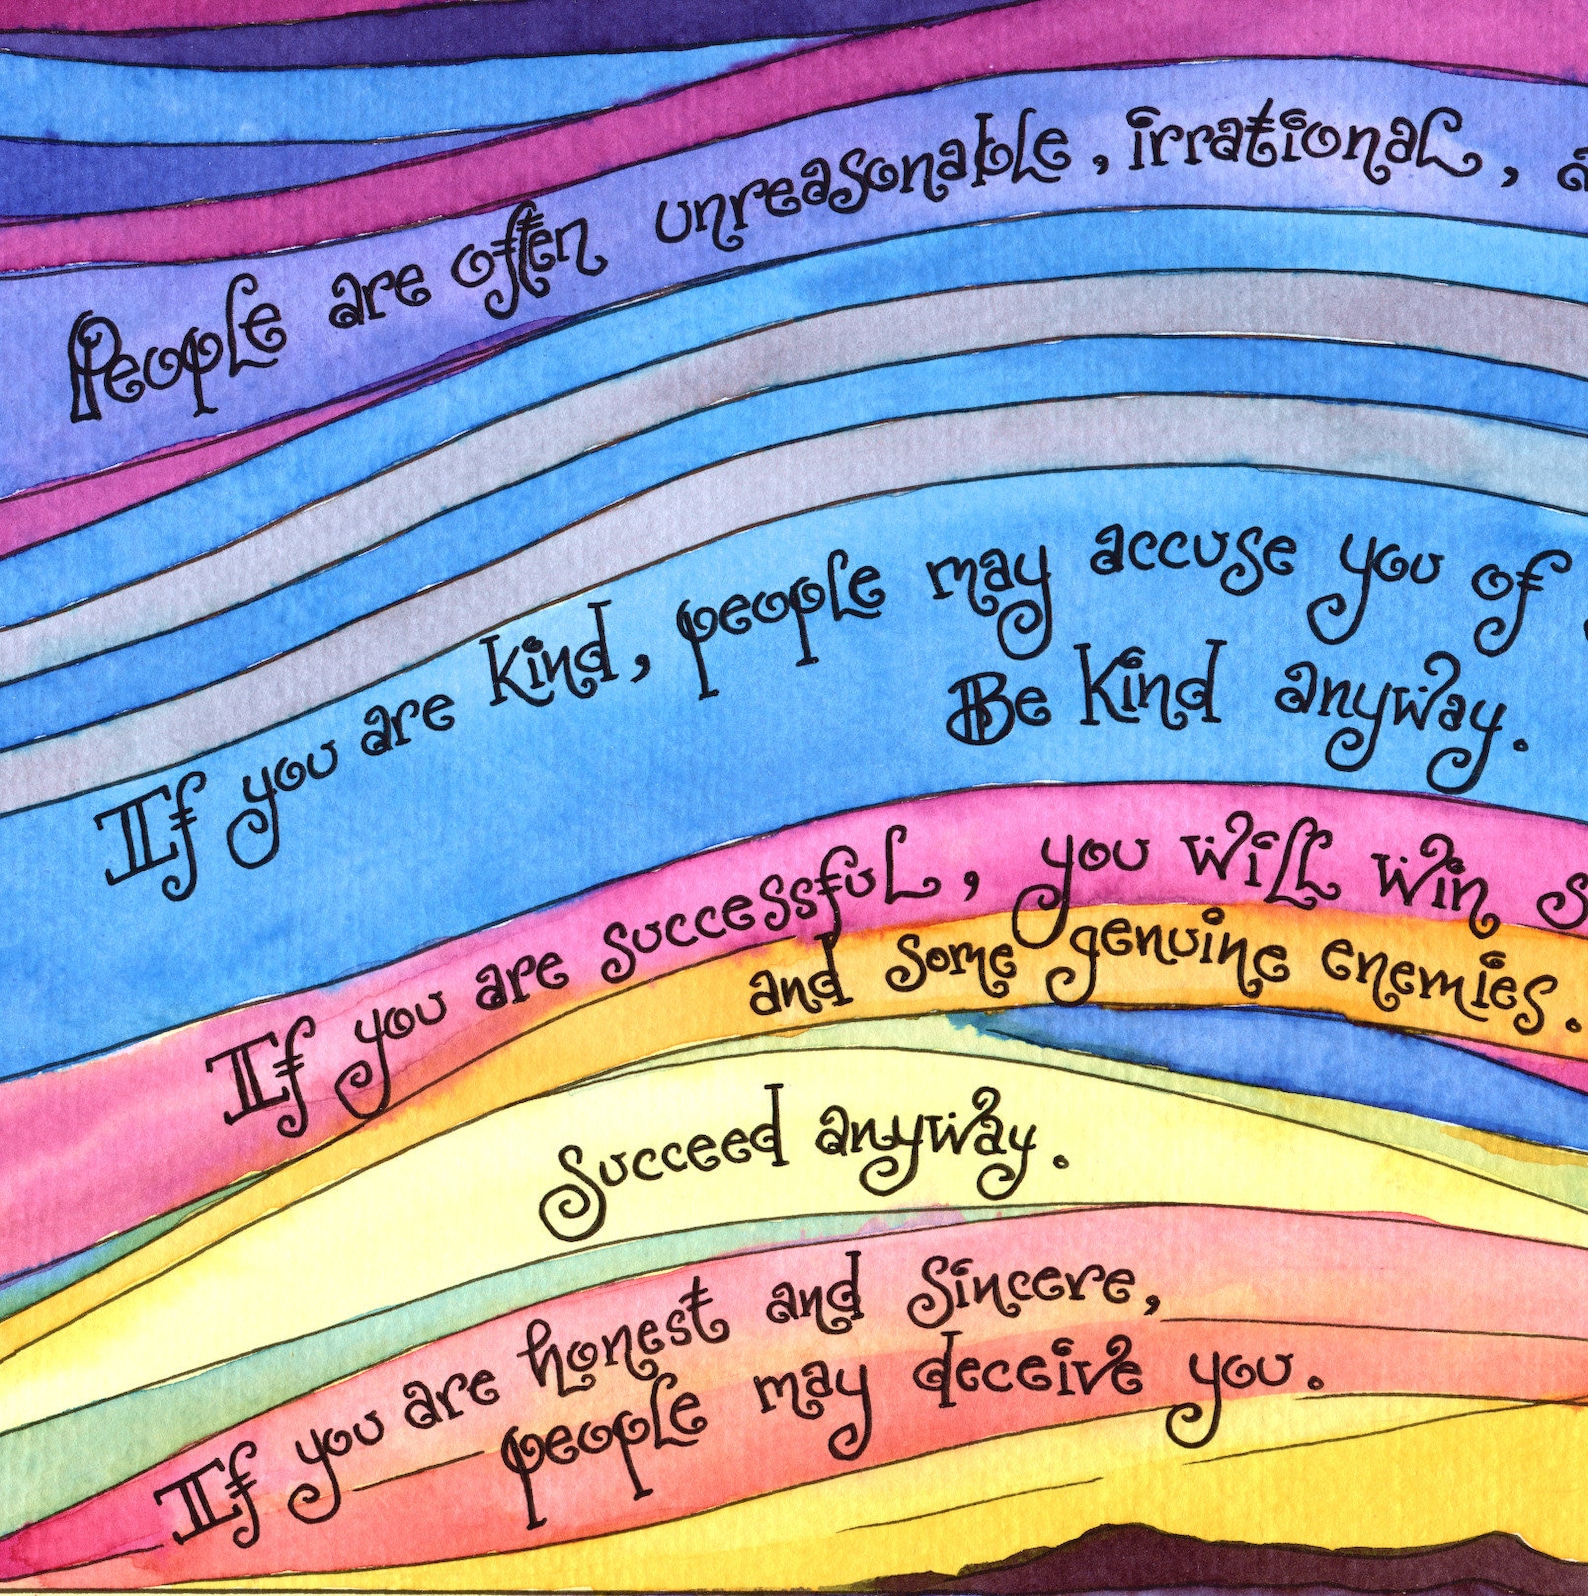 People are often unreasonable, irrational, a
If you are kind, people may accuse you of
Be Kind anyway.
If you are successful, you will win s
and some genuine enemies.
Succeed anyway.
If you are honest and sincere,
people may deceive you.